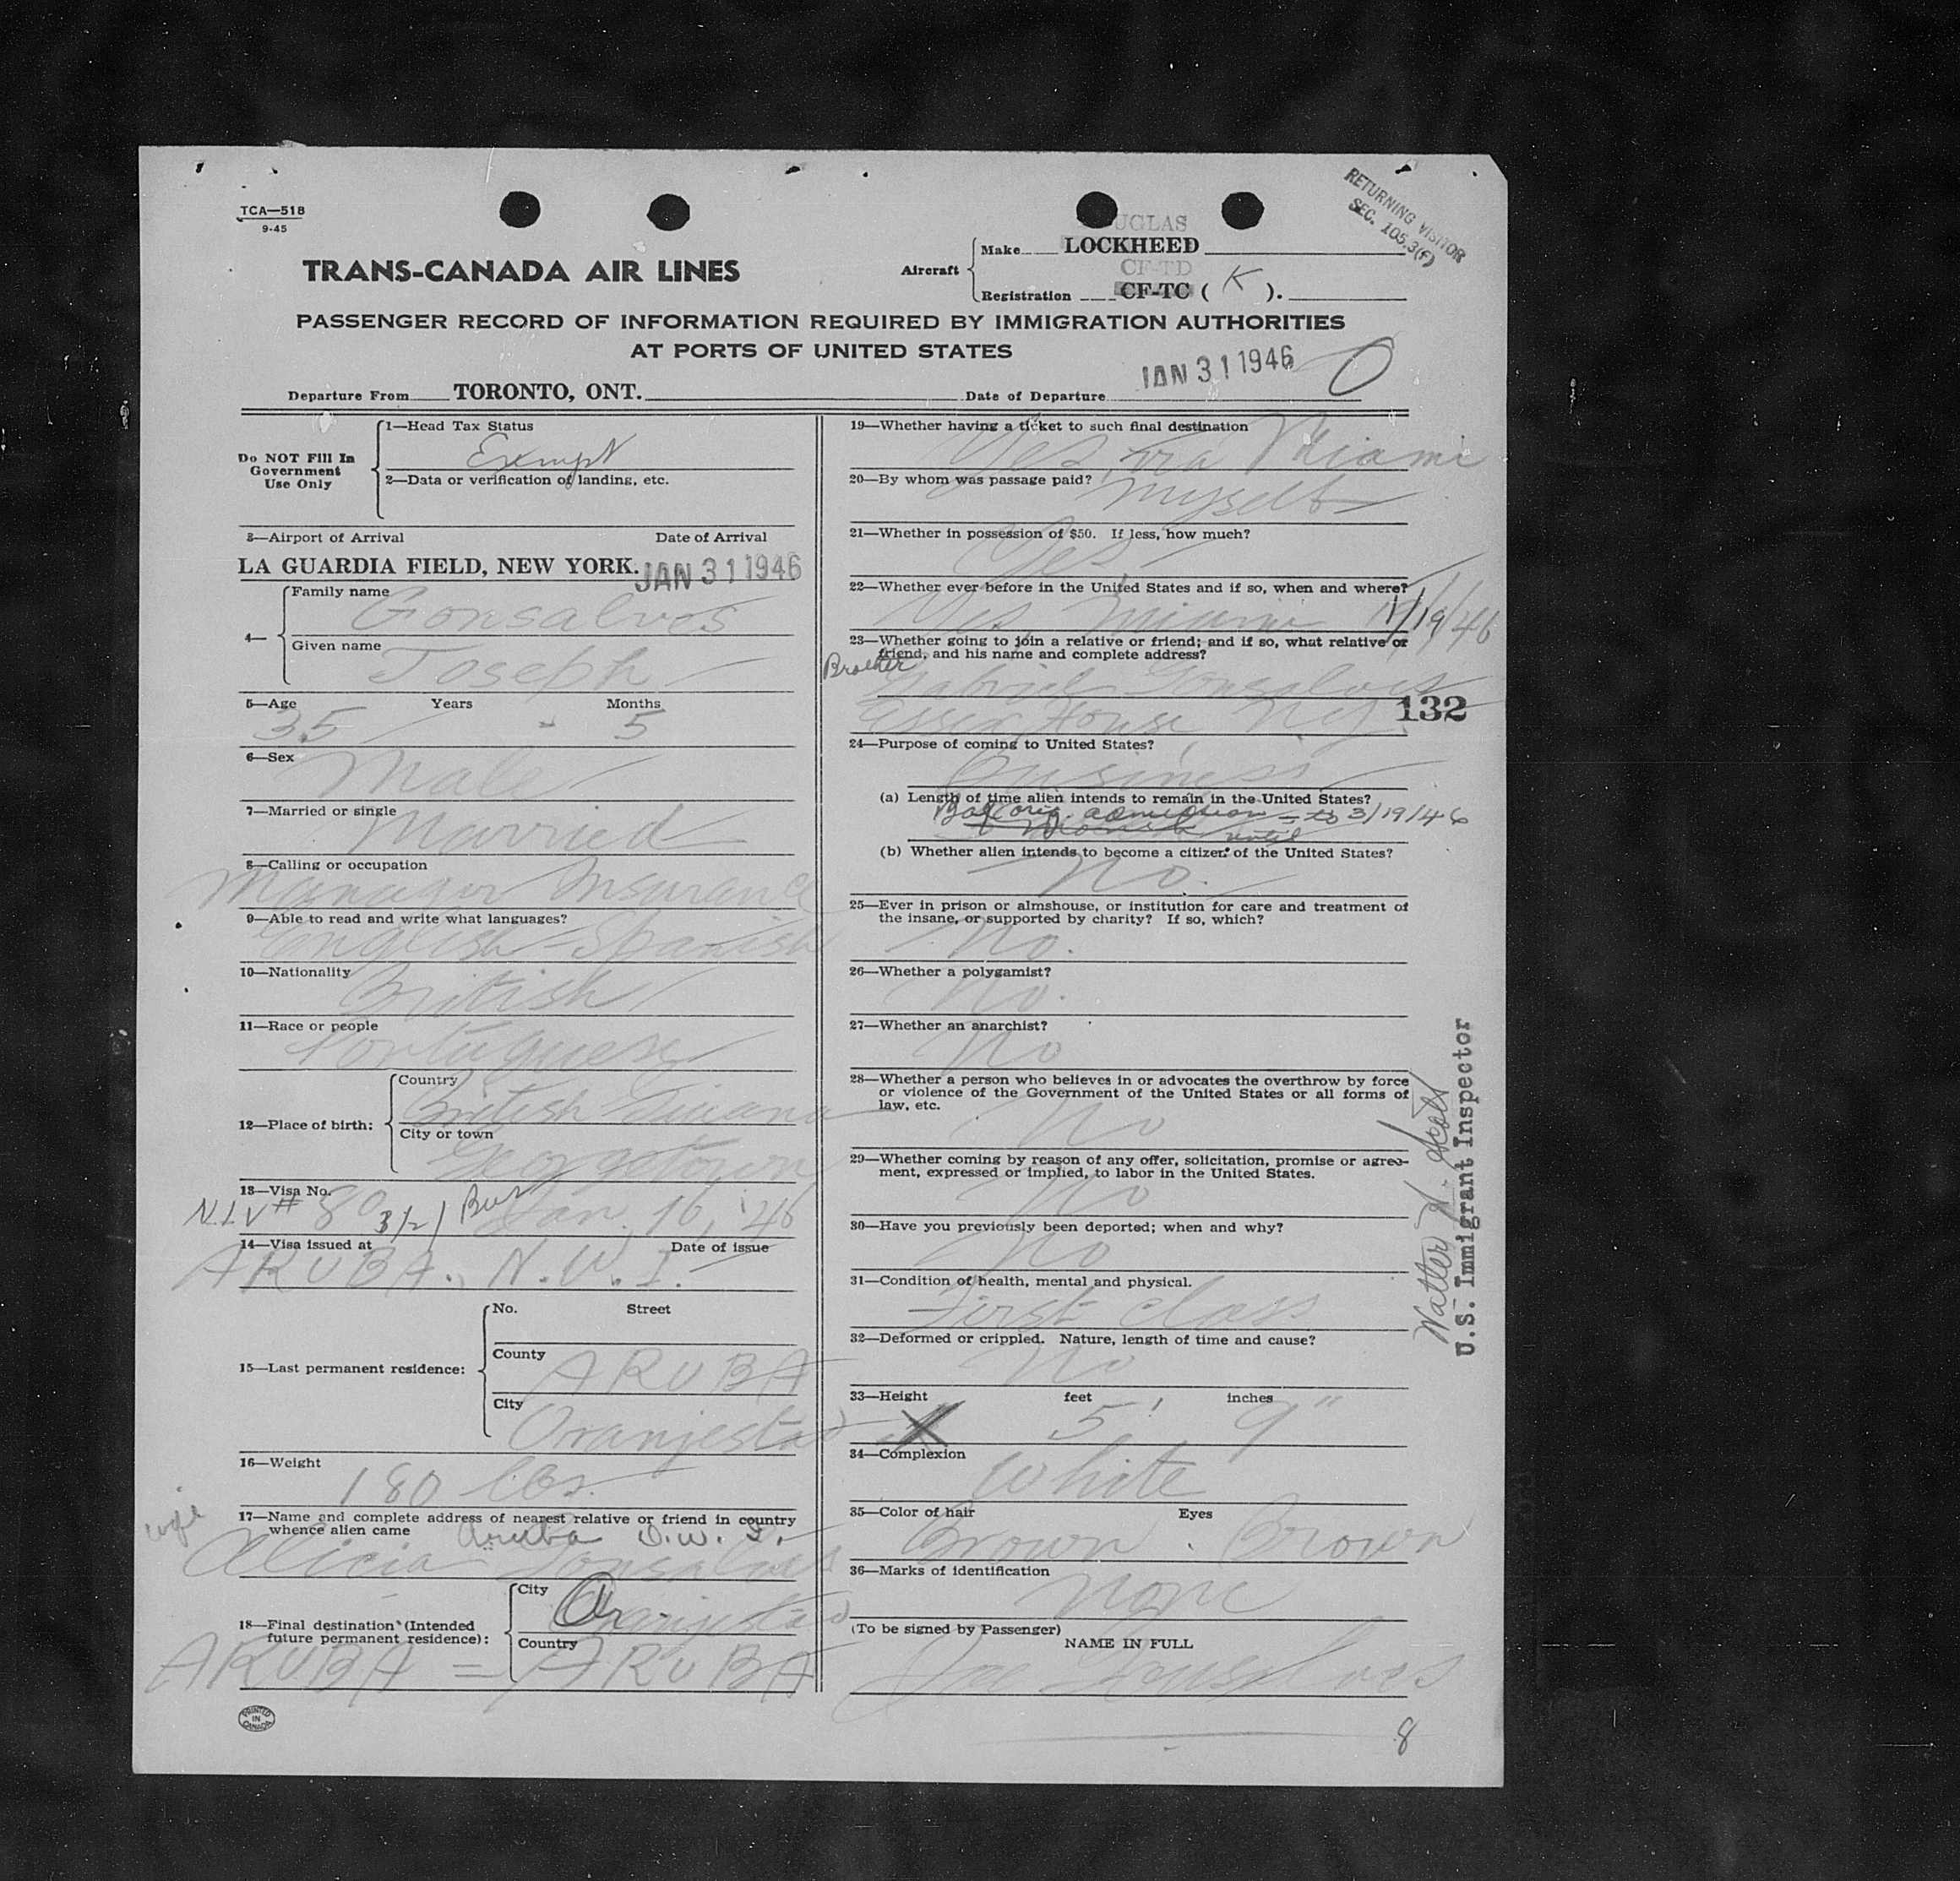 TCA—518
9-45
RETURNING VISITOR
SEC. 105.3(f)
TRANS-CANADA AIR LINES
Aircraft
Make DOUGLAS
LOCKHEED
CF-TD
Registration CF-TC ( K ).
PASSENGER RECORD OF INFORMATION REQUIRED BY IMMIGRATION AUTHORITIES
AT PORTS OF UNITED STATES
Departure From TORONTO, ONT. Date of Departure JAN 31 1946
Do NOT Fill In
Government
Use Only
1—Head Tax Status
Exempt
2—Data or verification of landing, etc.
3—Airport of Arrival Date of Arrival
LA GUARDIA FIELD, NEW YORK. JAN 31 1946
4—
Family name
Gonsalves
Given name
Joseph
5—Age Years Months
35 - 5
6—Sex
Male
7—Married or single
Married
8—Calling or occupation
Manager Insurance
9—Able to read and write what languages?
English - Spanish
10—Nationality
British
11—Race or people
Portuguese
12—Place of birth:
Country
British Guiana
City or town
Georgetown
13—Visa No.
N.I.V # 80 3/2/ Bus Jan. 16, '46
14—Visa issued at Date of issue
ARUBA., N.W.I.
15—Last permanent residence:
No. Street
County
ARUBA
City
Oranjestad
16—Weight
180 lbs.
17—Name and complete address of nearest relative or friend in country
whence alien came Aruba D.W.I.
wife
Alicia Gonsalves
18—Final destination (Intended
future permanent residence):
City
Oranjestad
Country
ARUBA = ARUBA
PRINTED
IN
CANADA
19—Whether having a ticket to such final destination
Yes, via Miami
20—By whom was passage paid?
Myself
21—Whether in possession of $50. If less, how much?
Yes
22—Whether ever before in the United States and if so, when and where?
Yes Miami 1/19/46
23—Whether going to join a relative or friend; and if so, what relative or
friend, and his name and complete address?
Brother
Gabriel Gonsalves
Essex House, N.Y.
132
24—Purpose of coming to United States?
Business
(a) Length of time alien intends to remain in the United States?
Bal orig. admission = to 3/19/46
until
(b) Whether alien intends to become a citizen of the United States?
No.
25—Ever in prison or almshouse, or institution for care and treatment of
the insane, or supported by charity? If so, which?
No.
26—Whether a polygamist?
No.
27—Whether an anarchist?
No
28—Whether a person who believes in or advocates the overthrow by force
or violence of the Government of the United States or all forms of
law, etc.
No
29—Whether coming by reason of any offer, solicitation, promise or agree-
ment, expressed or implied, to labor in the United States.
No
30—Have you previously been deported; when and why?
No
31—Condition of health, mental and physical.
First class
32—Deformed or crippled. Nature, length of time and cause?
No
33—Height feet inches
X 5' 9"
34—Complexion
White
35—Color of hair Eyes
Brown . Brown
36—Marks of identification
None
(To be signed by Passenger)
NAME IN FULL
Joe Gonsalves
8
Walter N. Scott
U.S. Immigrant Inspector